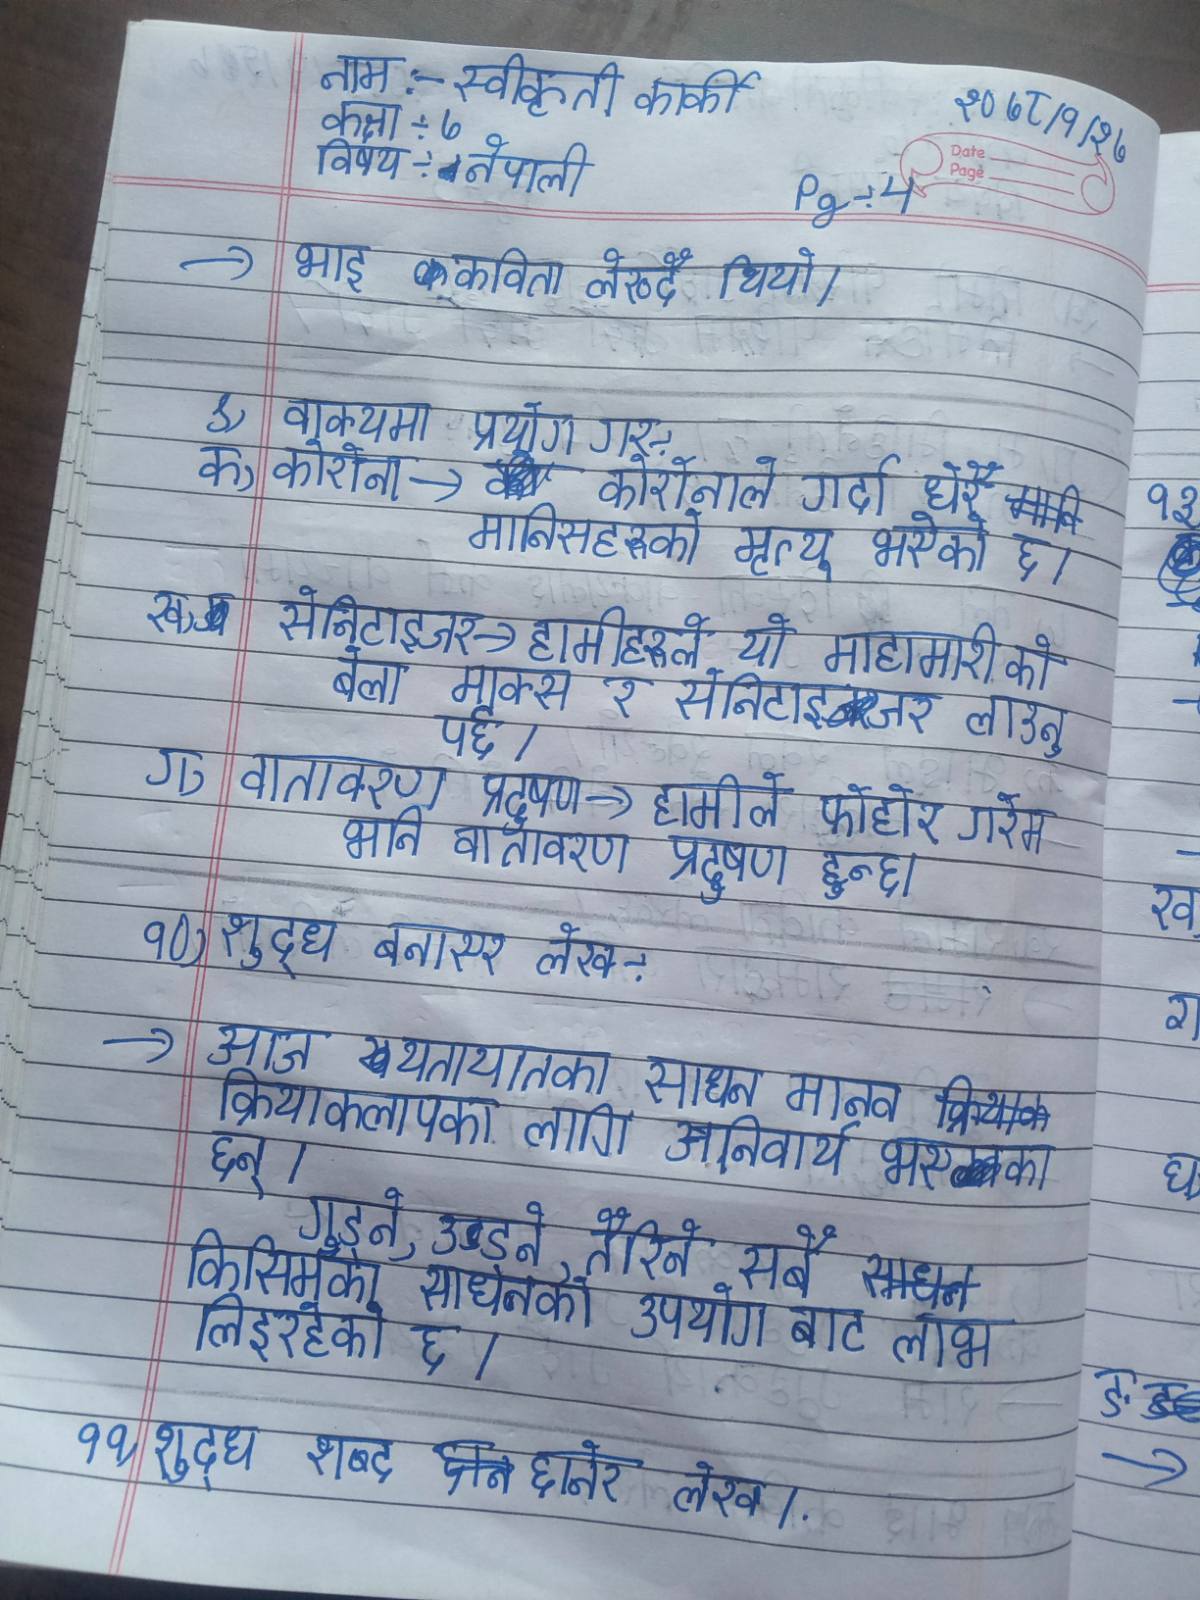 नाम :- स्वीकृती कार्की
२०७८/१/२७
कक्षा ÷ ७
Date
विषय ÷ नेपाली
Page
Pg ÷ 4
→ भाइ कविता लेख्दै थियो।
९, वाक्यमा प्रयोग गर÷
क, कोरोना → कोरोनाले गर्दा धेरै
मानिसहरुको मृत्यू भएको छ।
ख, सेनिटाइजर → हामीहरुले यो माहामारीको
बेला माक्स र सेनिटाइजर लाउनु
पर्छ।
ग, वातावरण प्रदुषण → हामीले फोहोर गरेम
भनि वातावरण प्रदुषण हुन्छ।
१०, शुद्ध बनाएर लेख÷
→ आज यतायातका साधन मानव
क्रियाकलापका लागि अनिवार्य भएका
छन्।
गुड्ने, उड्ने, तैरिने सबै
किसिमका साधनको उपयोग बाट लाभ
लिइरहेको छ।
११, शुद्ध शब्द छानेर लेख।
१३
ख,
ग
घ,
ङ.
→